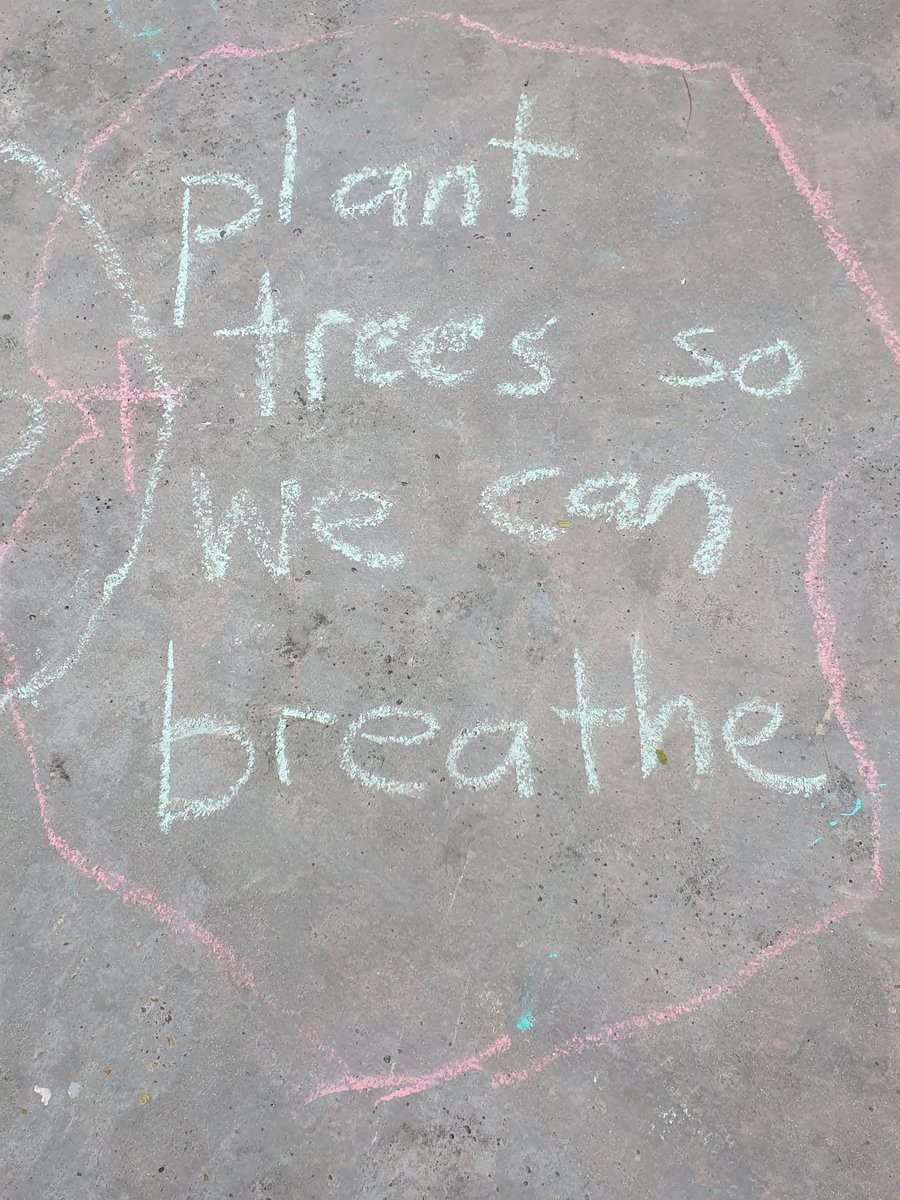 plant
trees so
we can
breathe